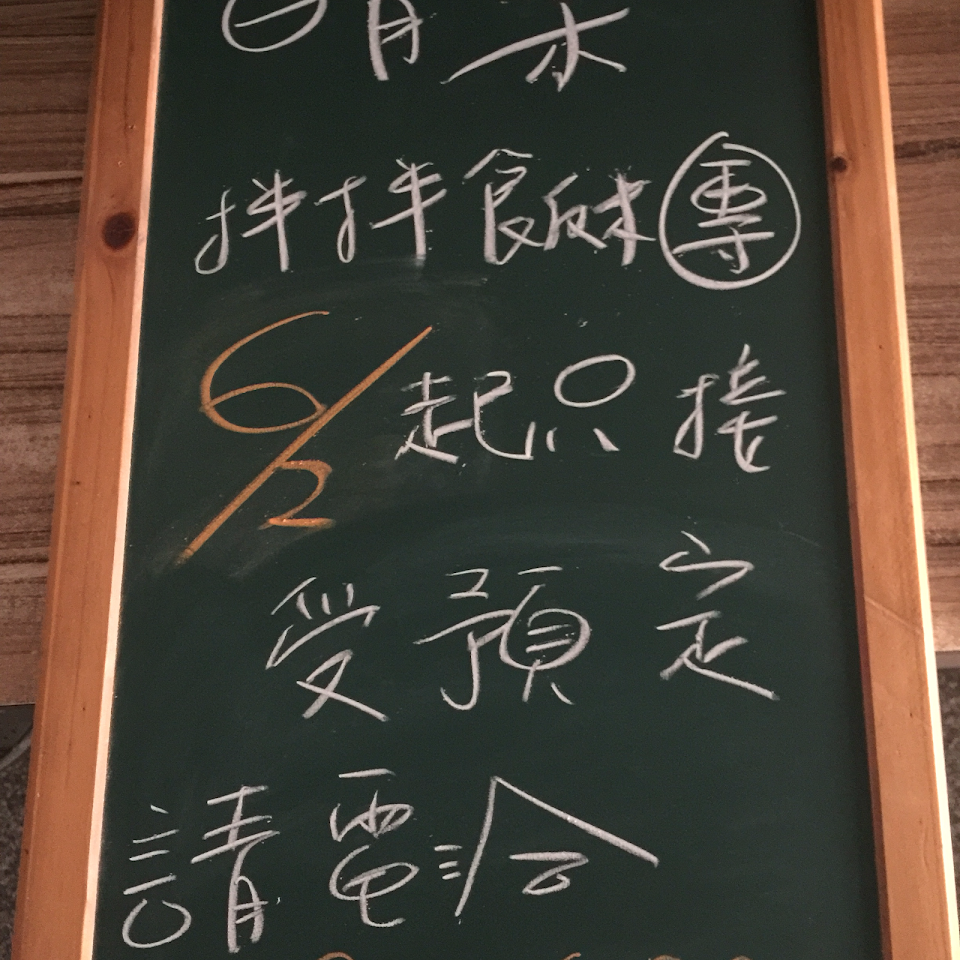 拌拌飯糰
6/2起只接
受預定
請電洽